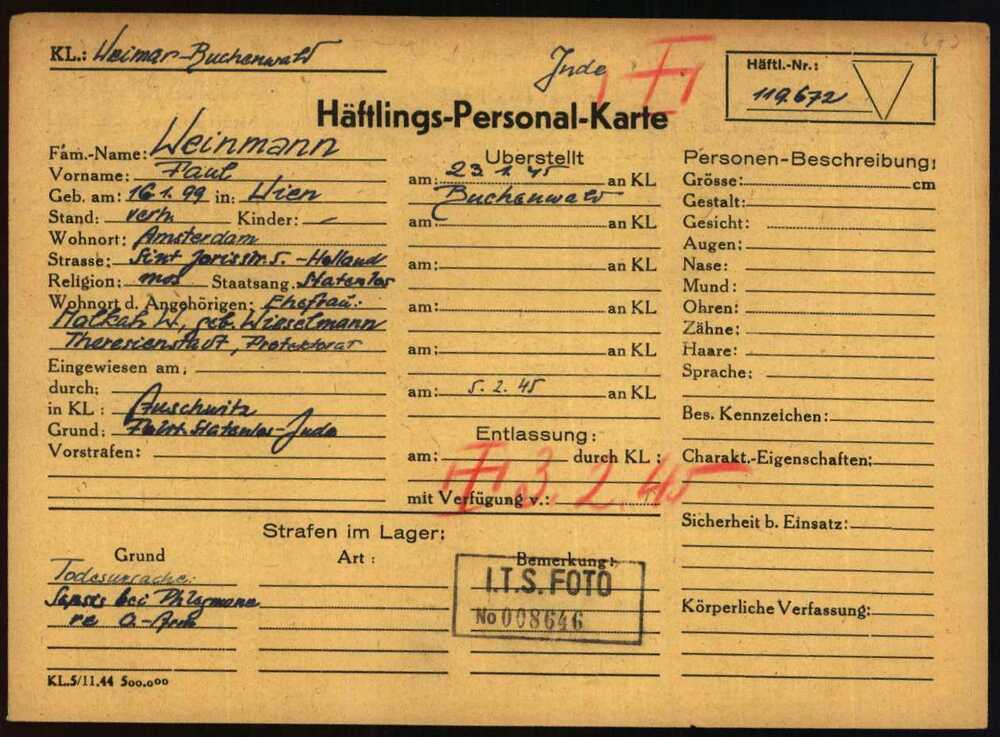 KL.: Weimar-Buchenwald
Jude
Häftl.-Nr.:
119.672
Häftlings-Personal-Karte
Fam.-Name: Weinmann
Vorname: Paul
Geb. am: 16.1.99 in: Wien
Stand: verh. Kinder: –
Wohnort: Amsterdam
Strasse: Sint Jorisstr. 5. - Holland
Religion: mos Staatsang. Statenlos
Wohnort d. Angehörigen: Ehefrau:
Malkah W., geb. Wieselmann
Theresienstadt, Protektorat
Eingewiesen am:
durch:
in KL: Auschwitz
Grund: Polit. Statenlos-Jude
Vorstrafen:
Überstellt
am: 23.1.45 an KL
Buchenwald
am: an KL
am: an KL
am: an KL
am: an KL
am: 5.2.45 an KL
Entlassung:
am: durch KL:
3.2.45
mit Verfügung v.:
Personen-Beschreibung:
Grösse: cm
Gestalt:
Gesicht:
Augen:
Nase:
Mund:
Ohren:
Zähne:
Haare:
Sprache:
Bes. Kennzeichen:
Charakt.-Eigenschaften:
Sicherheit b. Einsatz:
Körperliche Verfassung:
Strafen im Lager:
Grund Art: Bemerkung:
Todesursache:
Sepsis bei Phlegmone
re O.-Arm
I.T.S. FOTO
No 008646
KL.5/11.44 500.000